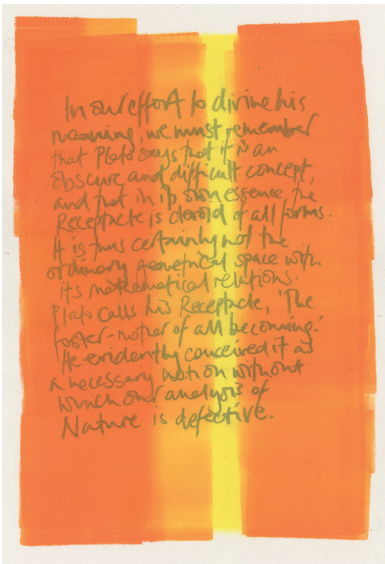 In our effort to divine his
meaning, we must remember
that Plato says that it is an
obscure and difficult concept,
and that in its own essence the
Receptacle is devoid of all forms.
It is thus certainly not the
ordinary geometrical space with
its mathematical relations.
Plato calls his Receptacle, 'The
foster-mother of all becoming.'
He evidently conceived it as
a necessary notion without
which our analysis of
Nature is defective.